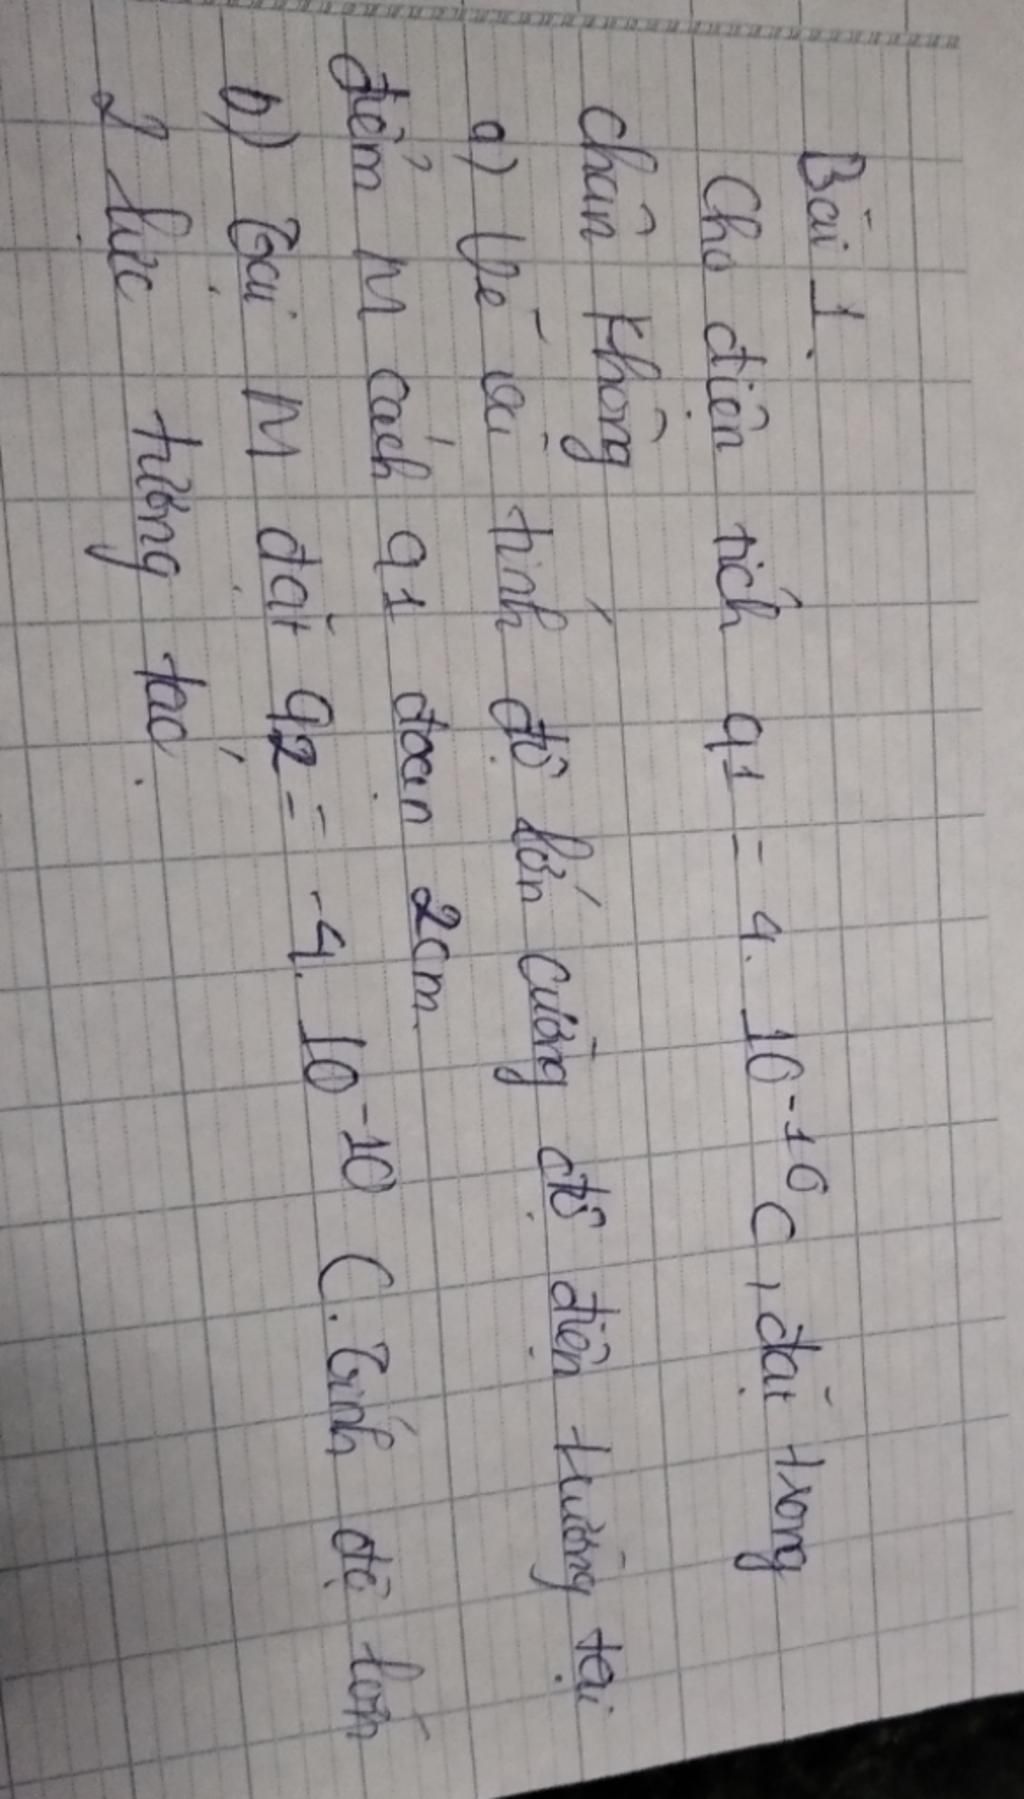 Bài 1.
Cho điện tích q1 = 4. 10⁻¹⁰ C, đặt trong
chân không
a) Vẽ và tính độ lớn cường độ điện trường tại
điểm M cách q1 đoạn 2cm.
b) Tại M đặt q2 = -4. 10⁻¹⁰ C. Tính độ lớn
2 lực tương tác.